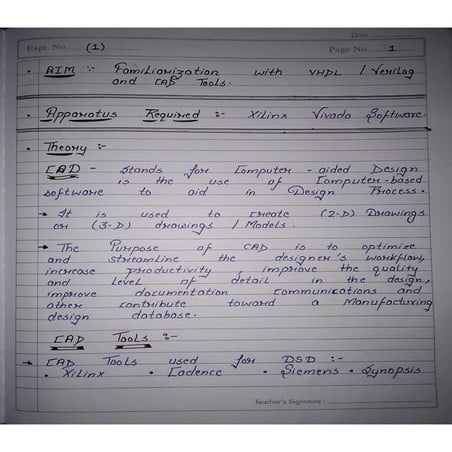 Date
Expt. No. (1) Page No. 1
• AIM :- Familiarization with VHDL / Verilog
and CAD Tools.
• Apparatus Required :- Xilinx Vivado Software
• Theory :-
CAD - Stands for Computer-aided Design
is the use of Computer-based
software to aid in Design Process.
→ It is used to create (2-D) Drawings
or (3-D) drawings / Models.
→ The Purpose of CAD is to optimize
and streamline the designer's workflow,
increase productivity, improve the quality
and Level of detail in the design,
improve documentation communications and
other contribute toward a Manufacturing
design database.
CAD Tools :-
→ CAD Tools used for DSD :-
• Xilinx • Cadence • Siemens • Synopsis
Teacher's Signature :